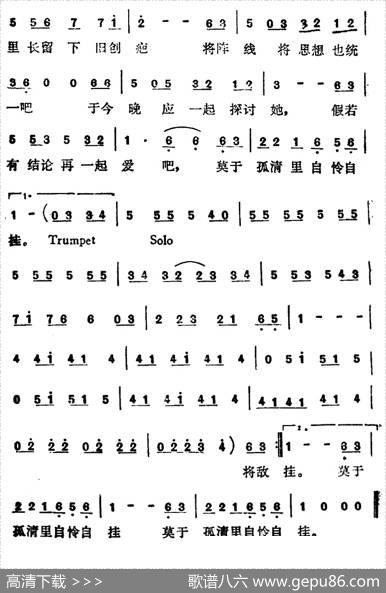 5 5 6 7 7 i | 2 - - 6 3 | 5 0 3 3 2 1 2 |
里 长留 下 旧创 疤 将阵 线 将 思想 也统
3 6 0 0 6 6 | 5 0 5 3 2 1 2 | 3 - - 6 3 |
一吧 于今 晚 应 一起 探讨 她, 假若
5 5 3 5 3 2 | 1 · 6 6 6 3 | 2 2 1 6 5 6 |
有 结论 再 一起 爱 吧, 莫于 孤清 里自 怜自
1.
1 - ( 0 3 3 4 | 5 5 5 5 4 0 | 5 5 5 5 5 5 5 |
挂。 Trumpet Solo
5 5 5 5 5 5 | 3 4 3 2 2 3 3 4 | 5 5 3 5 4 3 |
7 i 7 6 6 0 3 | 2 2 3 2 1 6 5 | 1 - - - |
4 4 i 4 1 4 | 4 1 4 i 4 1 4 | 0 5 i 5 1 5 |
0 5 i 5 1 5 | 4 1 4 i 4 1 4 | 4 1 4 1 4 1 4 |
2.
0 2 2 2 0 2 2 2 | 0 2 2 3 4 ) 6 3 :‖ 1 - - 6 3 |
将敌 挂。 莫于
2 2 1 6 5 6 | 1 - - 6 3 | 2 2 1 6 5 6 | 1 0 0 0 ‖
孤清里自怜自 挂 莫于 孤清里自怜自 挂。
高清下载 >>>
歌谱八六 www.gepu86.com